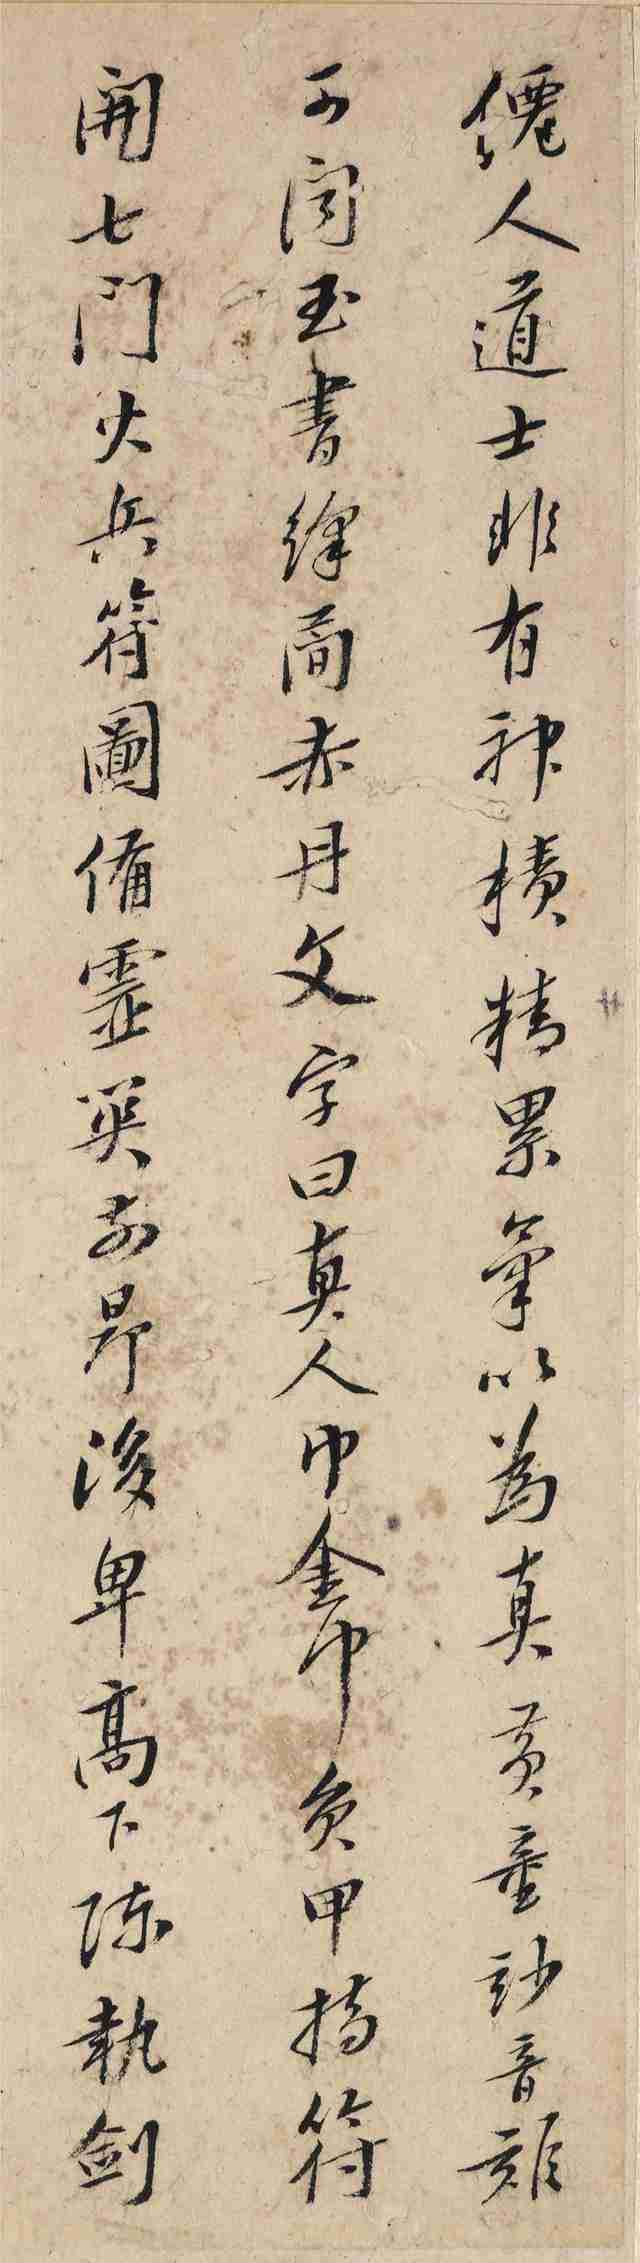 僊人道士非有神積精累氣以為真黄童妙音難
可聞玉書絳簡赤丹文字曰真人巾金巾負甲持符
開七門火兵符圖備靈關前昂後卑高下陳執劍